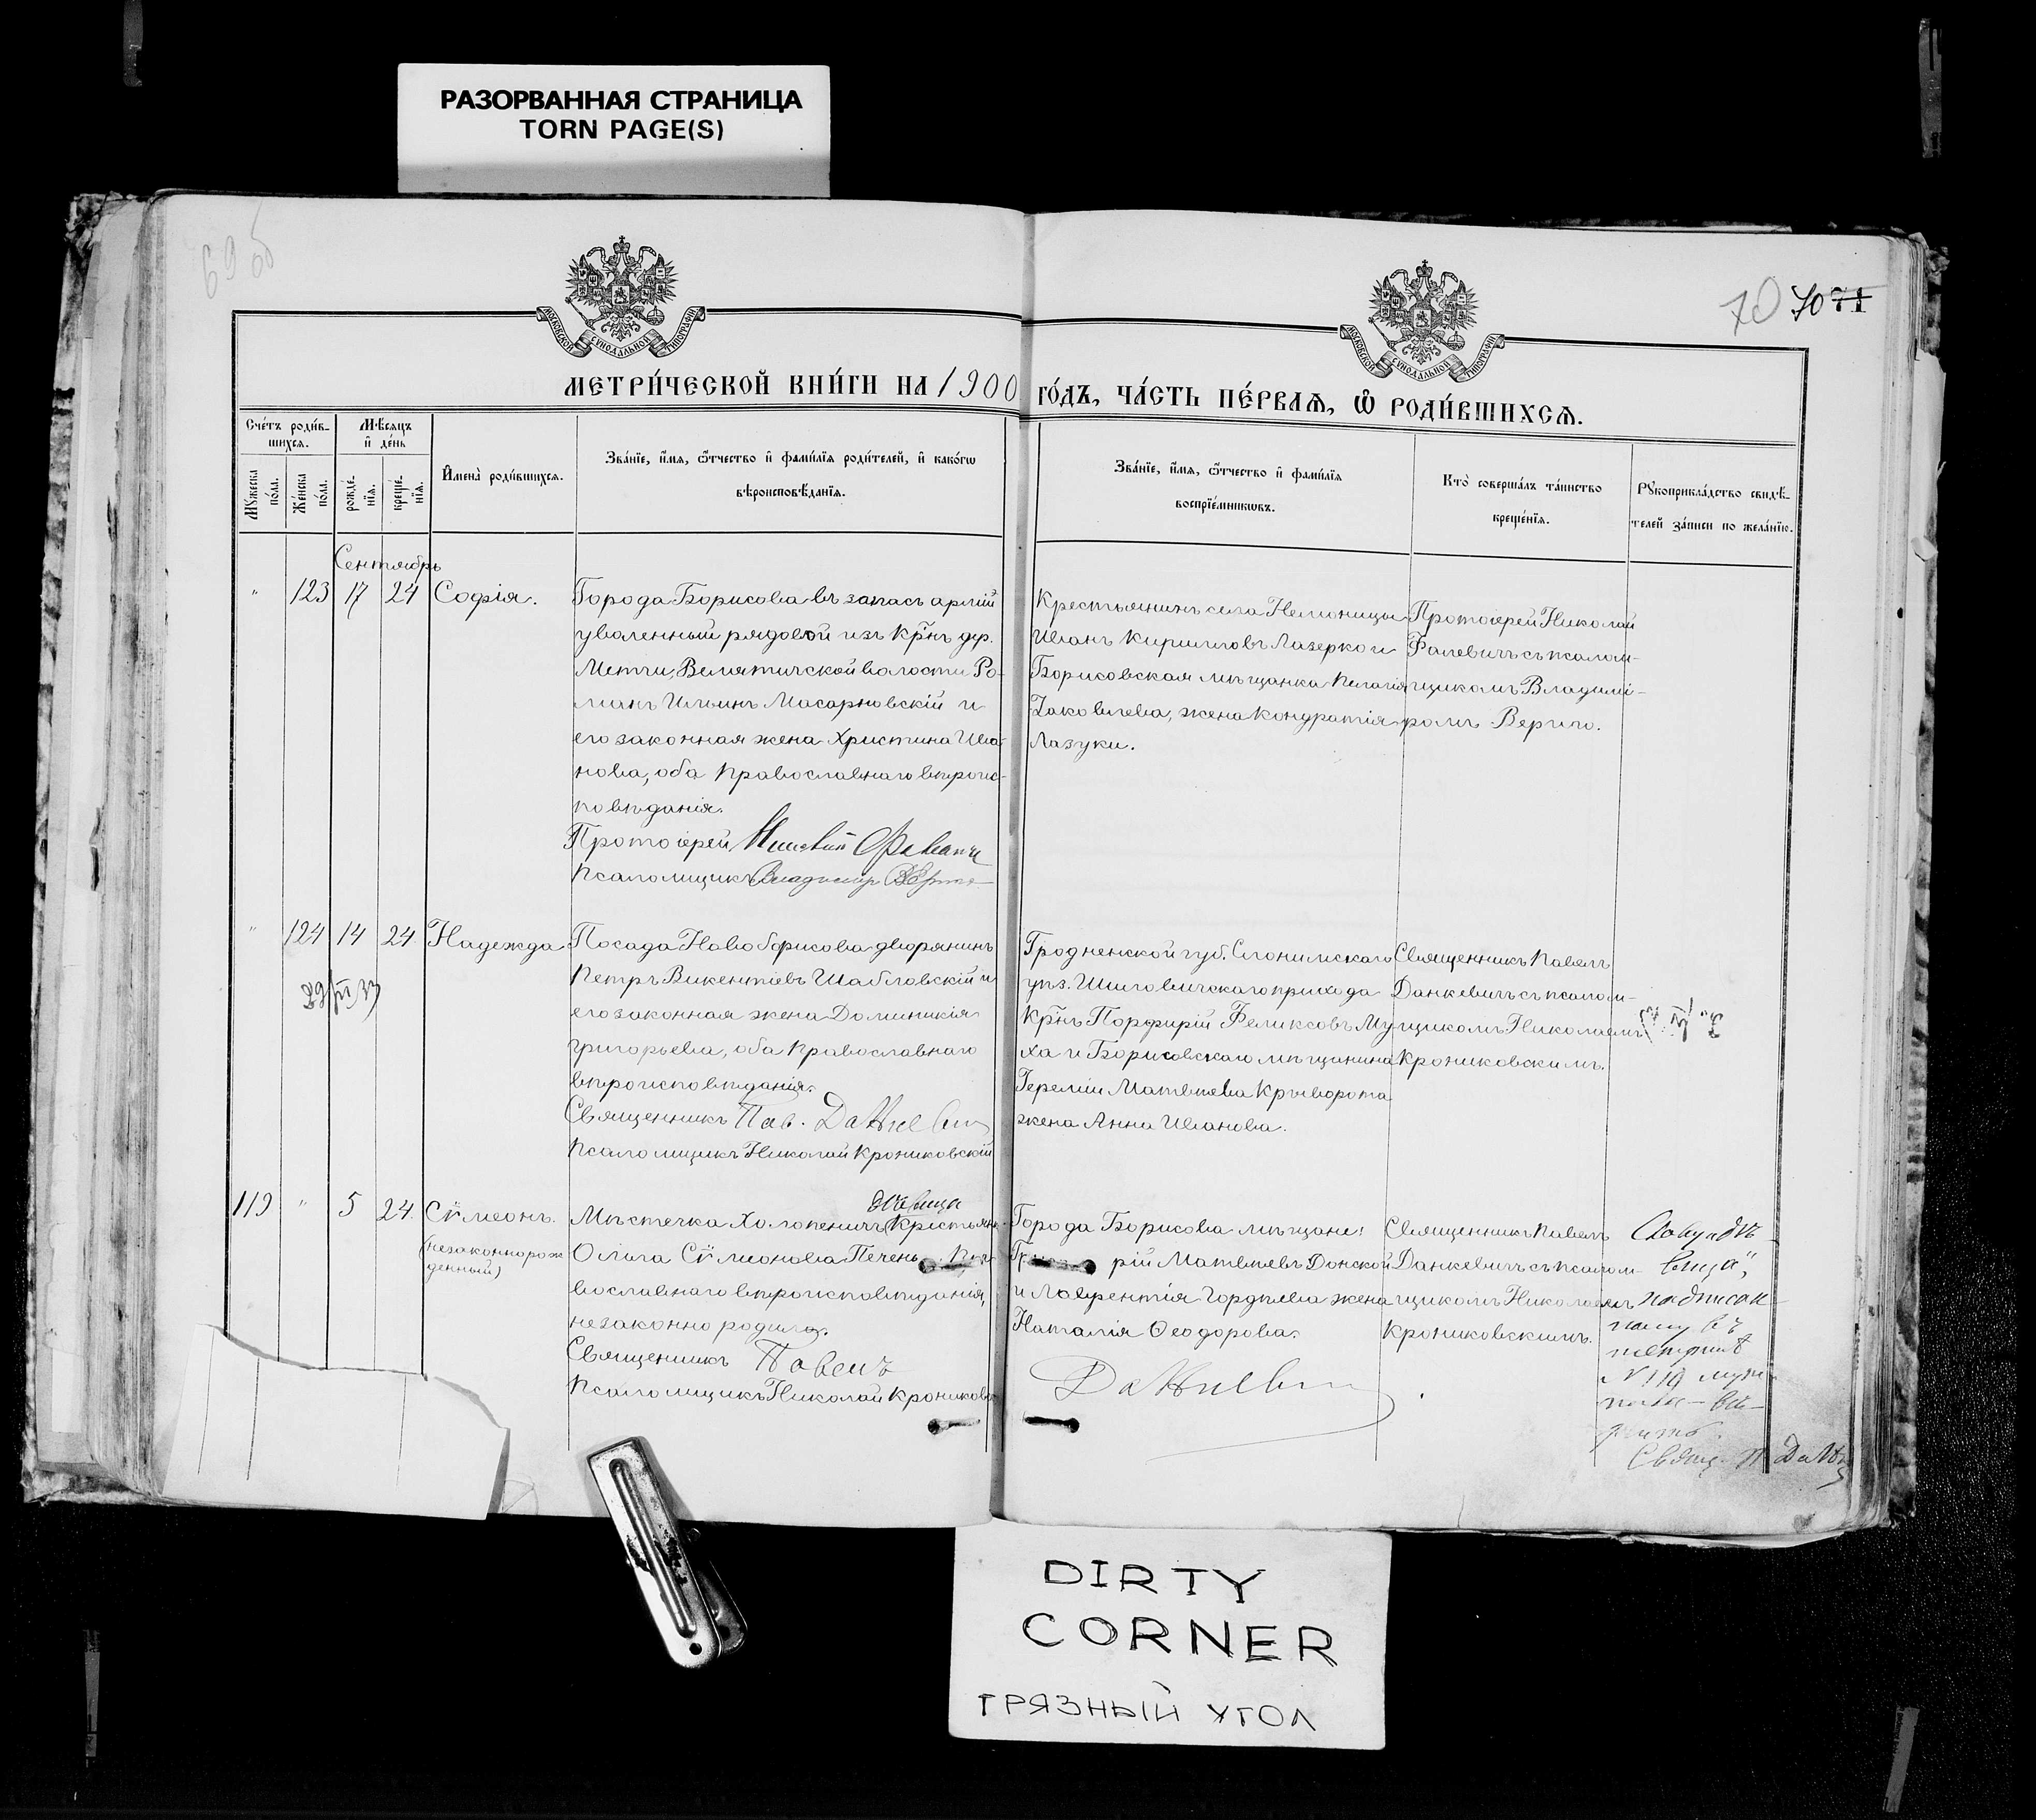 РАЗОРВАННАЯ СТРАНИЦА
TORN PAGE(S)
69 об
70 70 71
МОСКОВСКОЙ СУНОДАЛЬНОЙ ТИПОГРАФІИ
МОСКОВСКОЙ СУНОДАЛЬНОЙ ТИПОГРАФІИ
МЕТРИ́ЧЕСКОЙ КНИ́ГИ НА 1900 ГО́ДЪ, ЧА́СТЬ ПЕ́РВАѦ, Ѡ РОДИ́ВШИХСѦ.
Сче́тъ роди́в-
шихся.
Мѣ́сяцъ
и҆ де́нь
Мꙋжеска по́ла.
Же́нска по́ла.
рожде́нїя.
креще́нїя.
И҆мена̀ роди́вшихся.
Зва́нїе, и҆́мя, ѻ҆́тчество и҆ фами́лїя роди́телей, и҆ како́гѡ
вѣроисповѣ́данїя.
Зва́нїе, и҆́мя, ѻ҆́тчество и҆ фами́лїя
воспрїе́мникѡвъ.
Кто̀ соверша́лъ та́инство
креще́нїя.
Рꙋкоприкла́дство свидѣ́-
телей за́писи по жела́нїю.
Сентябрь
" 123 17 24 Софія.
Города Борисова въ запасъ арміи
уволенный рядовой изъ кр-нъ дер.
Метчи, Велятичской волости Ро-
манъ Ильинъ Масарновскій и
его законная жена Христина Ива-
нова, оба православнаго вѣроис-
повѣданія.
Протоіерей Николай
Псаломщикъ Владимир
Крестьянинъ села Неманицы
Иванъ Кирилловъ Лазерко и
Борисовская мѣщанка Пелагія
Іаковлева, жена Кондратія
Лазуки.
Протоіерей Николай
Фалевичъ съ псалом-
щикомъ Владимі-
ромъ Вериго.
" 124 14 24 Надежда
Посада Ново борисова дворянинъ
Петръ Викентіевъ Шабловскій и
его законная жена Доминикія
Григорьева, оба православнаго
вѣроисповѣданія.
Священникъ Пав. Данкевич
Псаломщикъ Николай Крониковскій
Гродненской губ. Слонимскаго
уѣз. Шиловичскаго прихода
кр-нъ Порфирій Феликсовъ Му-
ха и Борисовскаго мѣщанина
Іереміи Матвѣева Криворота
жена Анна Иванова.
Священникъ Павелъ
Данкевичъ съ псалом-
щикомъ Николаемъ
Крониковскимъ.
119 " 5 24 Сѵмеонъ.
(незаконнорож
денный)
дѣвица
Мѣстечка Холопеничъ Крестьян-
Ольга Сѵмеонова Печень, пра-
вославнаго вѣроисповѣданія,
незаконно родила.
Священникъ Павелъ
Псаломщикъ Николай Крониковс
Города Борисова мѣщане:
Григорій Матвѣевъ Донской
и Лаврентія Гордѣева жена
Наталія Ѳеодорова.
Данкевич
Священникъ Павелъ
Данкевичъ съ псалом-
щикомъ Николаемъ
Крониковскимъ.
Слову „дѣ-
вица",
надписан-
ному въ
метрикѣ
№ 119 муж.
пола — вѣ-
рить.
Свящ. П. Данк
DIRTY
CORNER
ГРЯЗНЫЙ УГОЛ